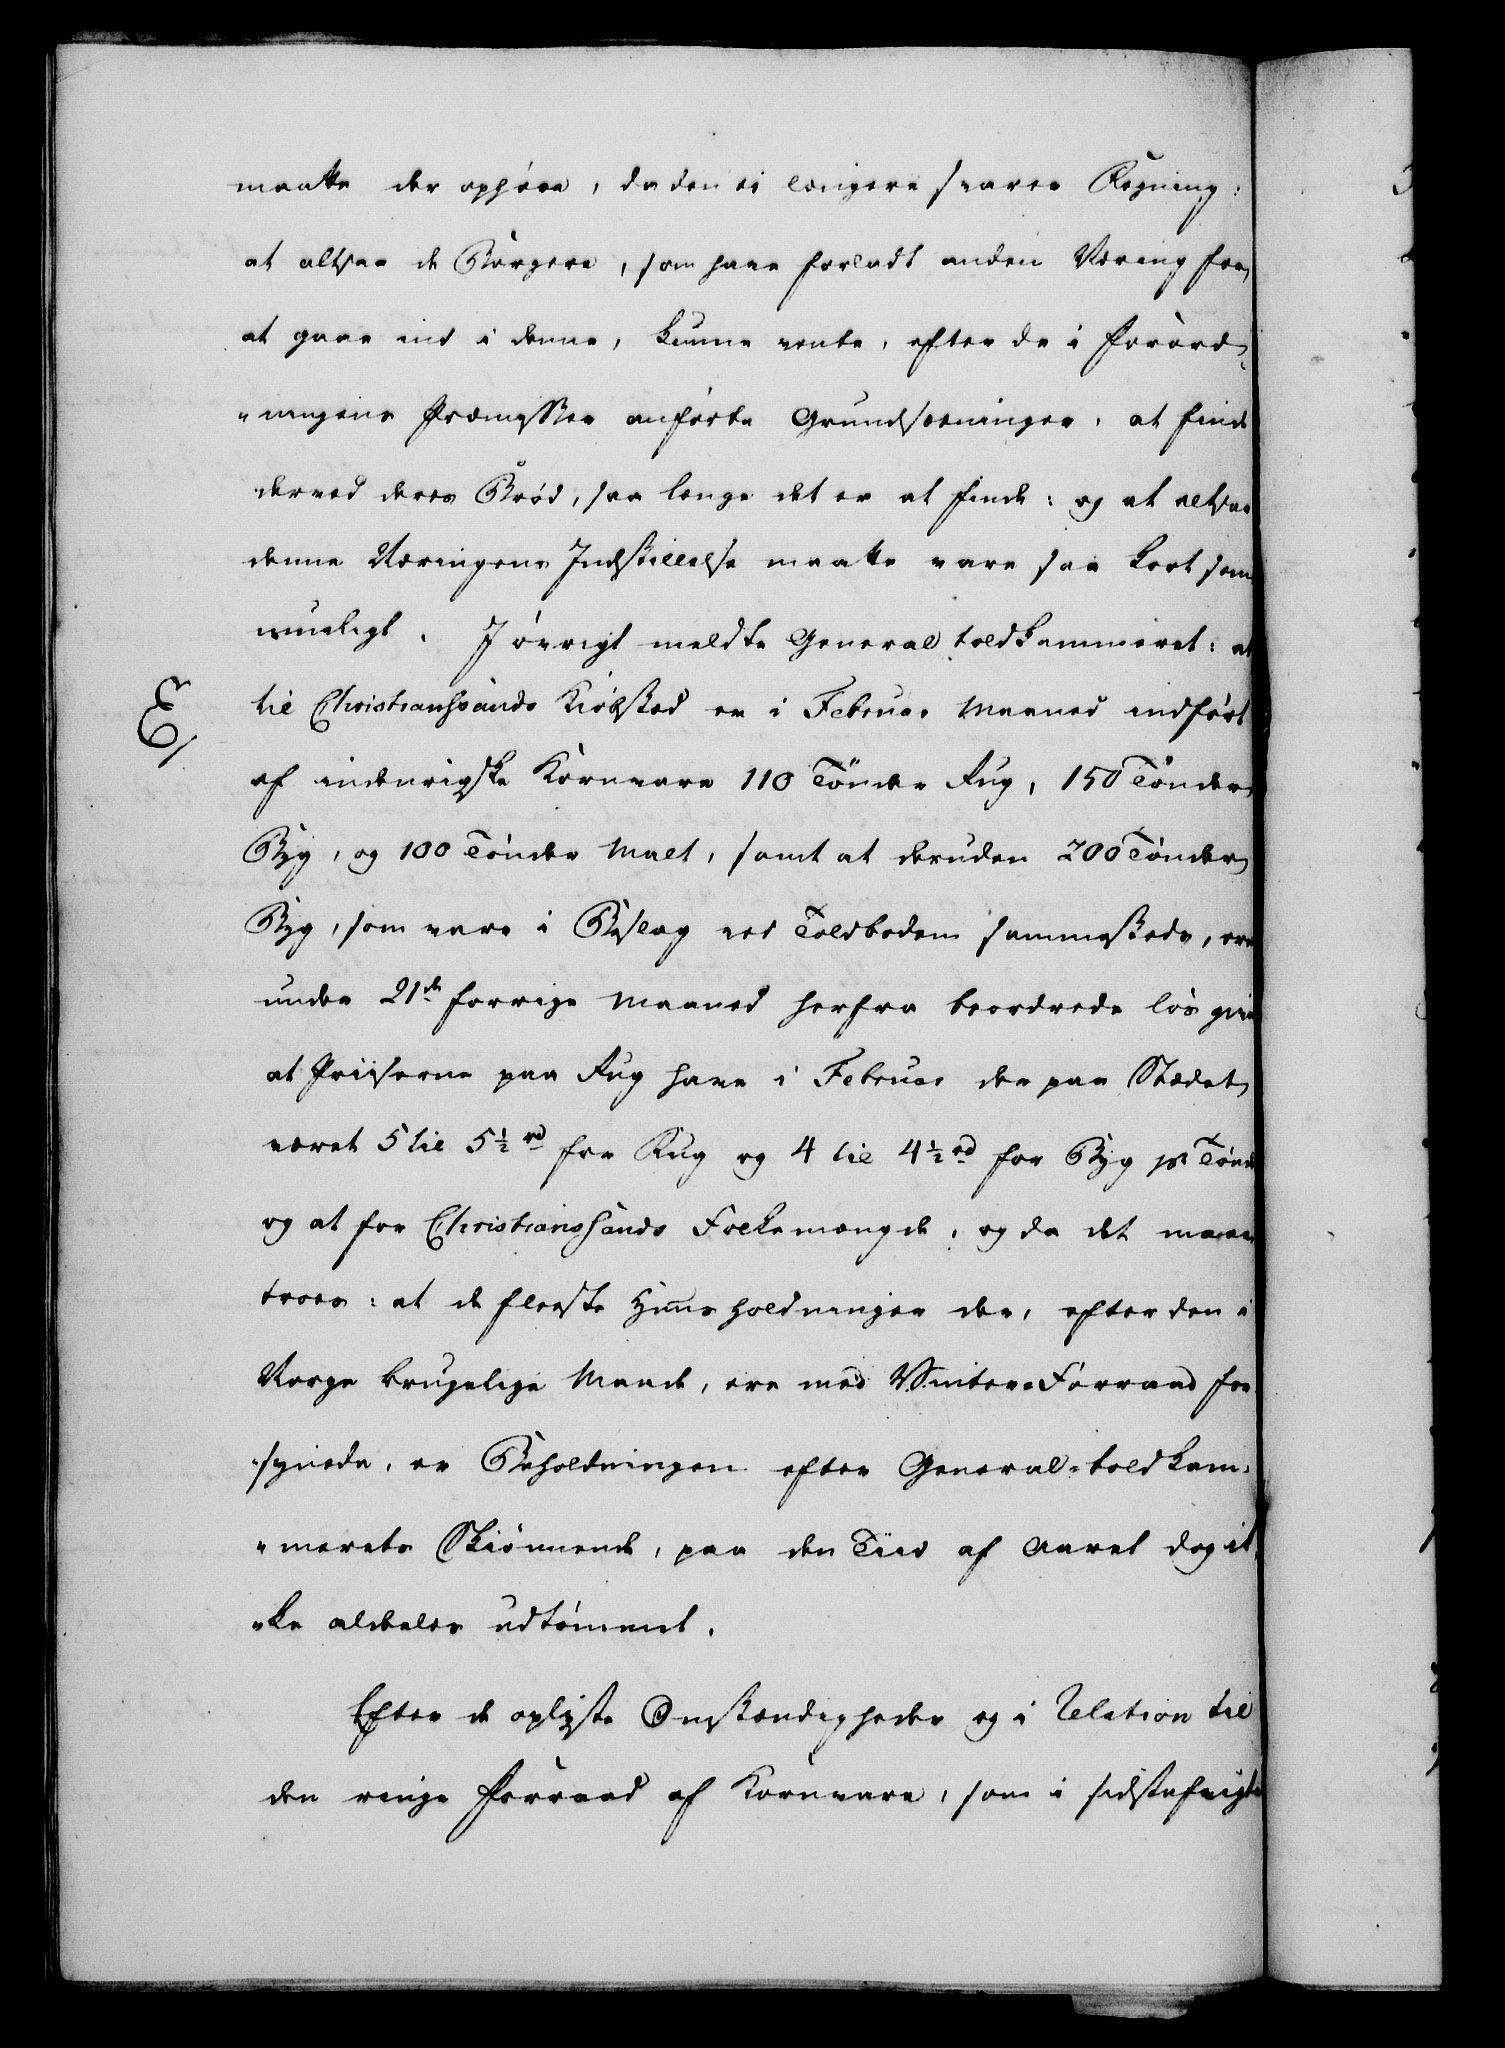 maatte der ophøre, da den ei længere svarer Regning:
at altsaa de Borgere, som have forladt anden Næring for
at gaae ind i denne, kunne vente, efter de i Forord¬
„ningens Præmisser anførte Grundsætninger, at finde
derved deres Brød, saa længe det er at finde: og at altsaa
denne Næringens Indstillelse maatte vare saa kort som
mueligt. I øvrigt meldte General toldkammeret: at
til Christianssands Kiøbsted er i Februar Maaned indført
E/
af indenrigske Kornvare 110 Tönder Rug, 150 Tönder
Byg, og 100 Tönder Malt, samt at desuden 200 Tönder
Byg, som vare i Beslag ved Toldboden sammesteds, ere
under 21de forrige Maaned herfra beordrede løs givne
at Priiserne paa Rug have i Februar der paa Stædet
været 5 til 5½ rd for Rug og 4 til 4½ rd for Byg pr Tønde
og at for Christianssands Folkemængde, og da det maae
troes: at de fleeste Huusholdninger der, efter den i
Norge brugelige Maade, ere med Vinter-Forraad for
„synede, er Beholdningen efter General-toldkam¬
„merets Skiønnende, paa den Tiid af Aaret dog ik
„ke aldeles udtømmet.
Efter de oplyste Omstændigheder og i Relation til
den ringe Forraad af Kornvare, som i sidstafvigte